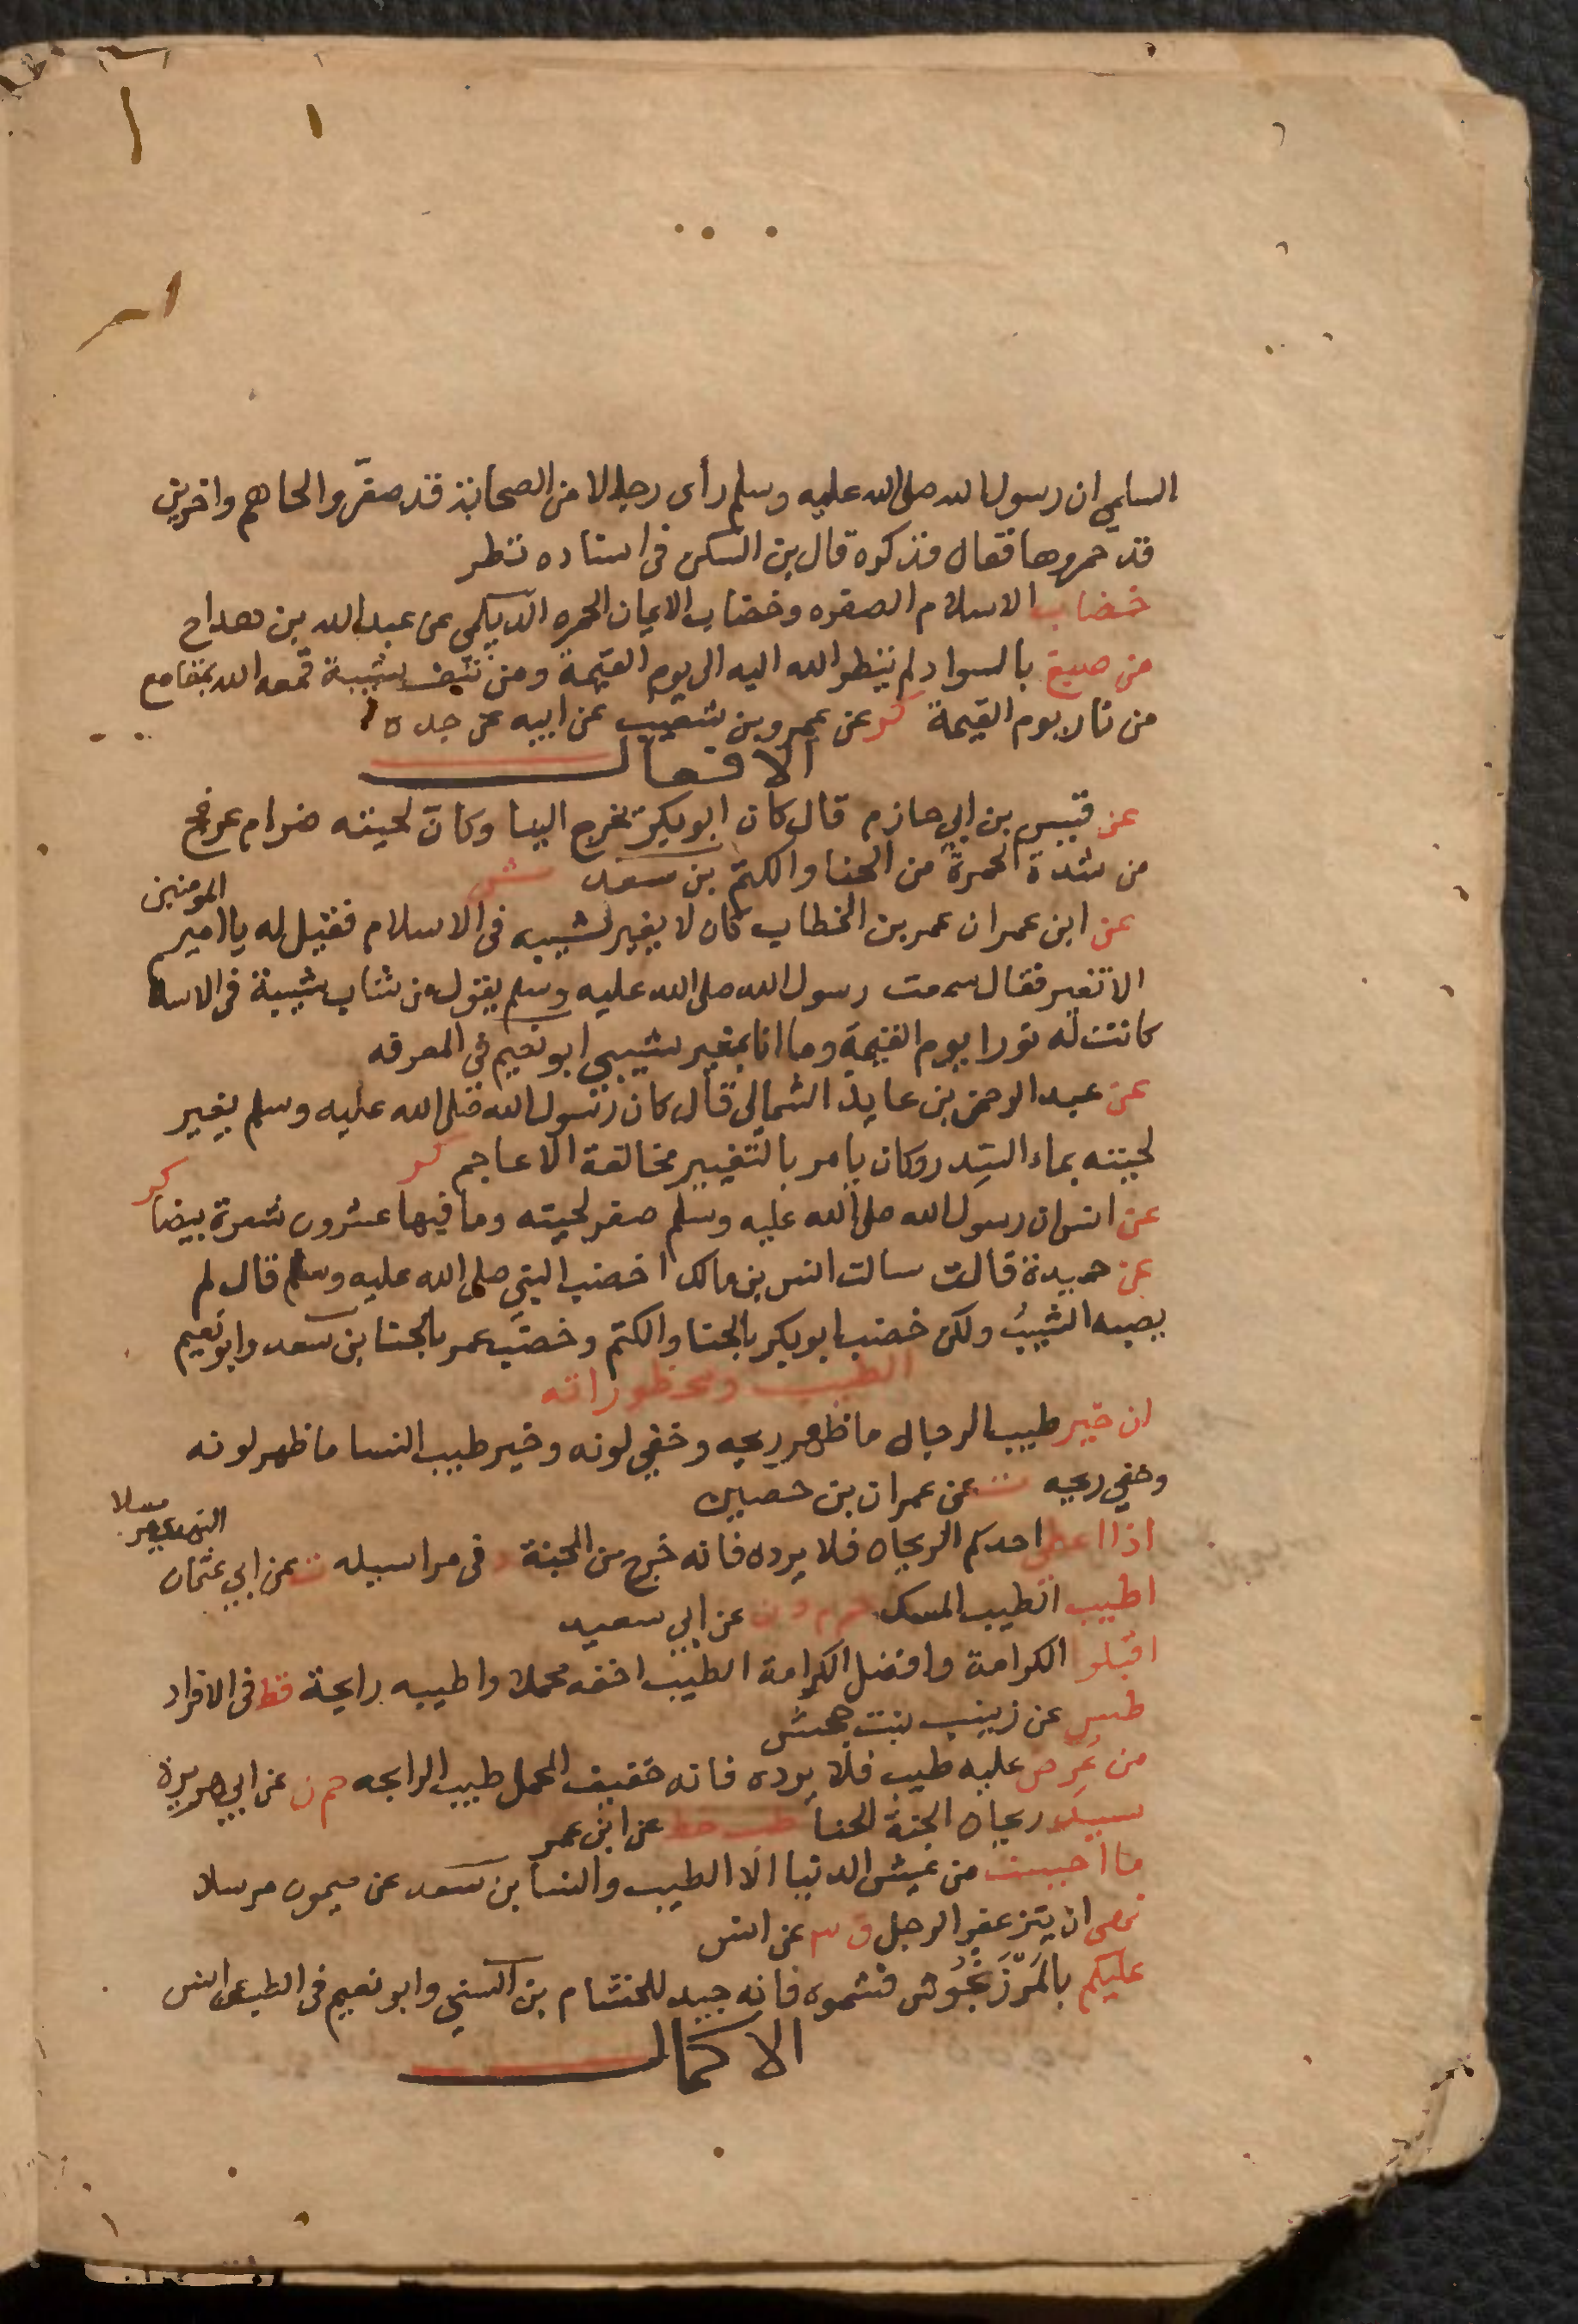 السلمي ان رسول الله صلى الله عليه وسلم رأى رجالا من الصحابة قد صفروا لحاهم واخرين
قد حمروها فقال فذكره قال بن السكن فى اسناده نظر
خضاب الاسلام الصفره وخضاب الايمان الحمره الديلمي عن عبد الله بن هداج
من صبغ بالسواد لم ينظر الله اليه الى يوم القيمة ومن نتف شيبة قمعه الله بمقامع
من نار يوم القيمة كر عن عمرو بن شعيب عن ابيه عن جده
الافعال
عن قيس بن ابي حازم قال كان ابو بكر يخرج الينا وكان لحيته ضرام عرفج
من شدة الحمرة من الحنا والكتم بن سعد ش
عن ابن عمر ان عمر بن الخطاب كان لا يغير شيبه فى الاسلام فقيل له يا امير المومنين
الا تغير فقال سمعت رسول الله صلى الله عليه وسلم يقول من شاب شيبة فى الاسلا
كانت له نورا يوم القيمة وما انا بمغير شيبي ابو نعيم في المعرفه
عن عبد الرحمن بن عايذ الثمالى قال كان رسول الله صلى الله عليه وسلم يغير
لحيته بماء السدر وكان يامر بالتغيير مخالفة الاعاجم كر
عن انس ان رسول الله صلى الله عليه وسلم صفر لحيته وما فيها عشرون شعرة بيضا كر
عن حميدة قالت سالت انس بن مالك اخضب النبي صلى الله عليه وسلم قال لم
يصبه الشيب ولكن خضب ابو بكر بالحنا والكتم وخضب عمر بالحنا بن سعد وابو نعيم
الطيب ومحظوراته
ان خير طيب الرجال ما ظهر ريحه وخفي لونه وخير طيب النسا ما ظهر لونه
وخفي ريحه ت عن عمران بن حصين
اذا اعطي احدكم الريحان فلا يرده فانه خرج من الجنة د فى مراسيله ت عن ابي عثمان النهدي مرسلا
اطيب الطيب المسك حم م د ن عن ابي سعيد
اقبلوا الكرامة وافضل الكرامة الطيب اخفه محملا واطيبه رايحة قط فى الافراد
طس عن زينب بنت جحش
من عرض عليه طيب فلا يرده فانه خفيف المحمل طيب الرايحه حم ن عن ابي هريرة
سيد ريحان الجنة الحنا طب خط عن ابن عمر
ما احببت من عيش الدنيا الا الطيب والنسا بن سعد عن ميمون مرسلا
نهى ان يتزعفر الرجل ق ٣ عن انس
عليكم بالمرزنجوش فشموه فانه جيد للخشام بن السني وابو نعيم فى الطب عن انس
الاكمال